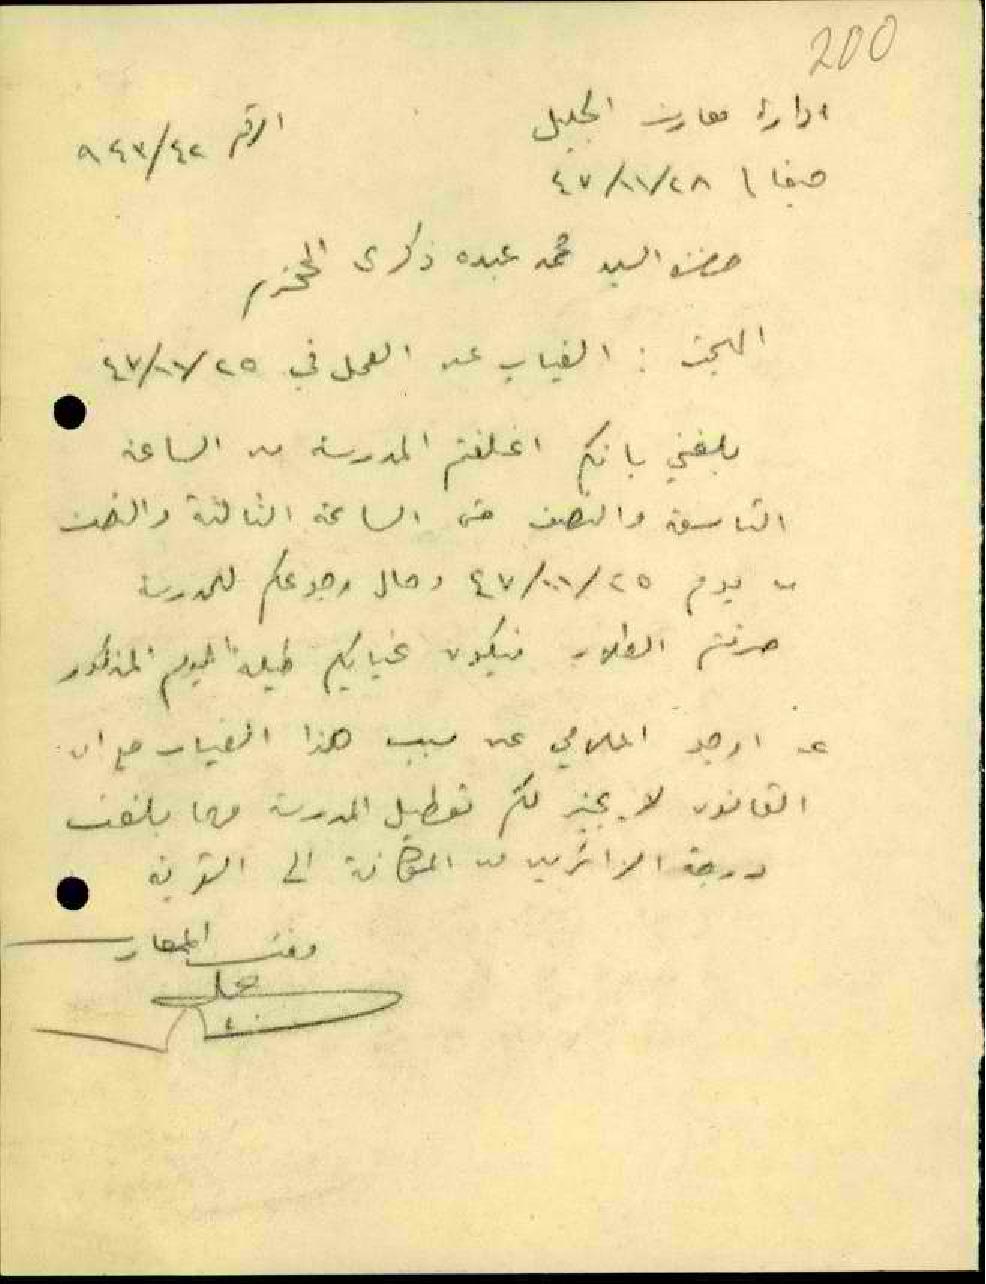 200
ادارة معارف الجليل
الرقم ٩٤٣/٤٢
حيفا \ ٤٧/١١/٢٨
حضرة السيد محمد عبده ذكرى المحترم
البحث : الغياب عن العمل في ٤٧/١١/٢٥
بلغني بانكم اغلقتم المدرسة من الساعة
التاسعة والنصف حتى الساعة الثالثة والنصف
يوم ٤٧/١١/٢٥ وحال رجوعكم للمدرسة
صرفتم الطلاب فيكون غيابكم طيلة اليوم المذكور
ارجو اعلامي عن سبب هذا الغياب مع ان
القانون لا يجيز لكم تعطيل المدرسة مهما بلغت
درجة الزائرين من المكانة الى القرية
مفتش المعارف